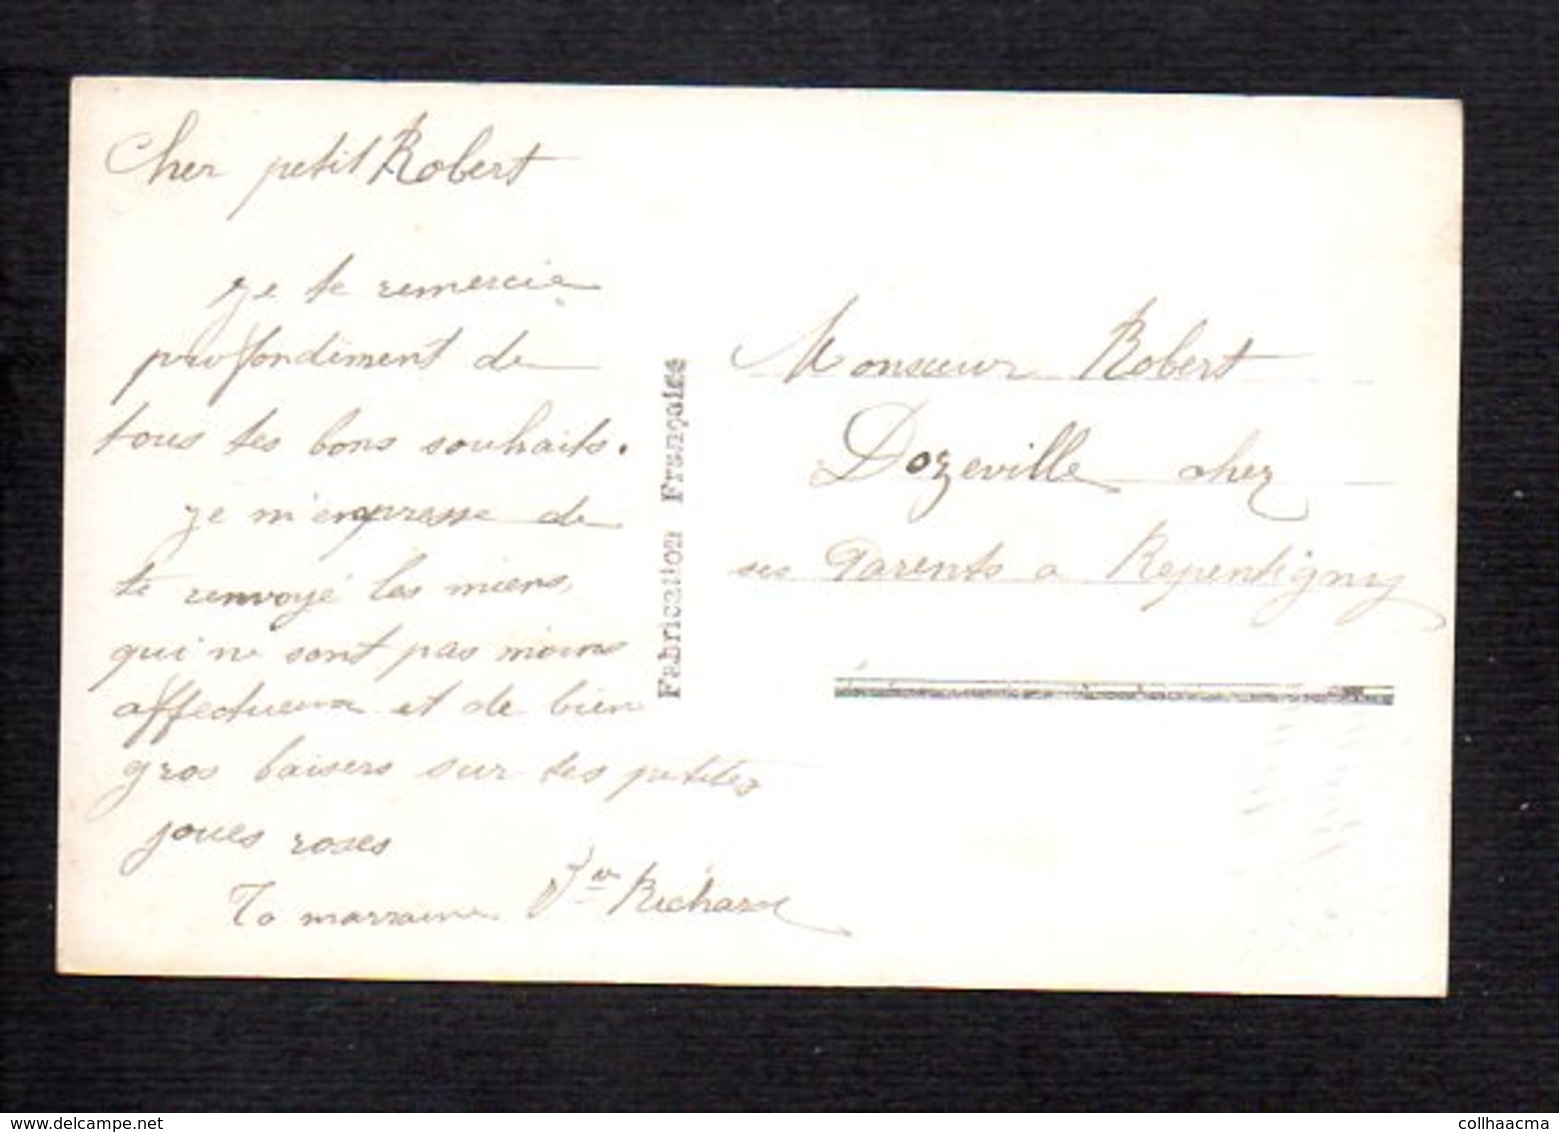 Cher petit Robert
je te remercie
profondément de
tous tes bons souhaits.
je m'empresse de
te renvoyé les miens,
qui ne sont pas moins
affectueux et de bien
gros baisers sur tes petites
joues roses
Ta marraine Richard
Fabrication Française
Monsieur Robert
Dozeville chez
ses Parents a Repentigny
collhaacma